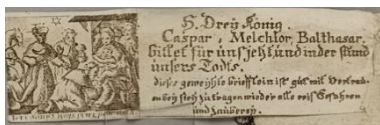 H. Dreÿ König.
Caspar, Melchior, Balthasar.
bittet für uns jetzt, und in der stund
unsers Todts.
dieses geweÿhte brieflein ist gut mit Vertrau-
en beÿ sich zu tragen wieder alle reis Gefahren
und Zauberey.